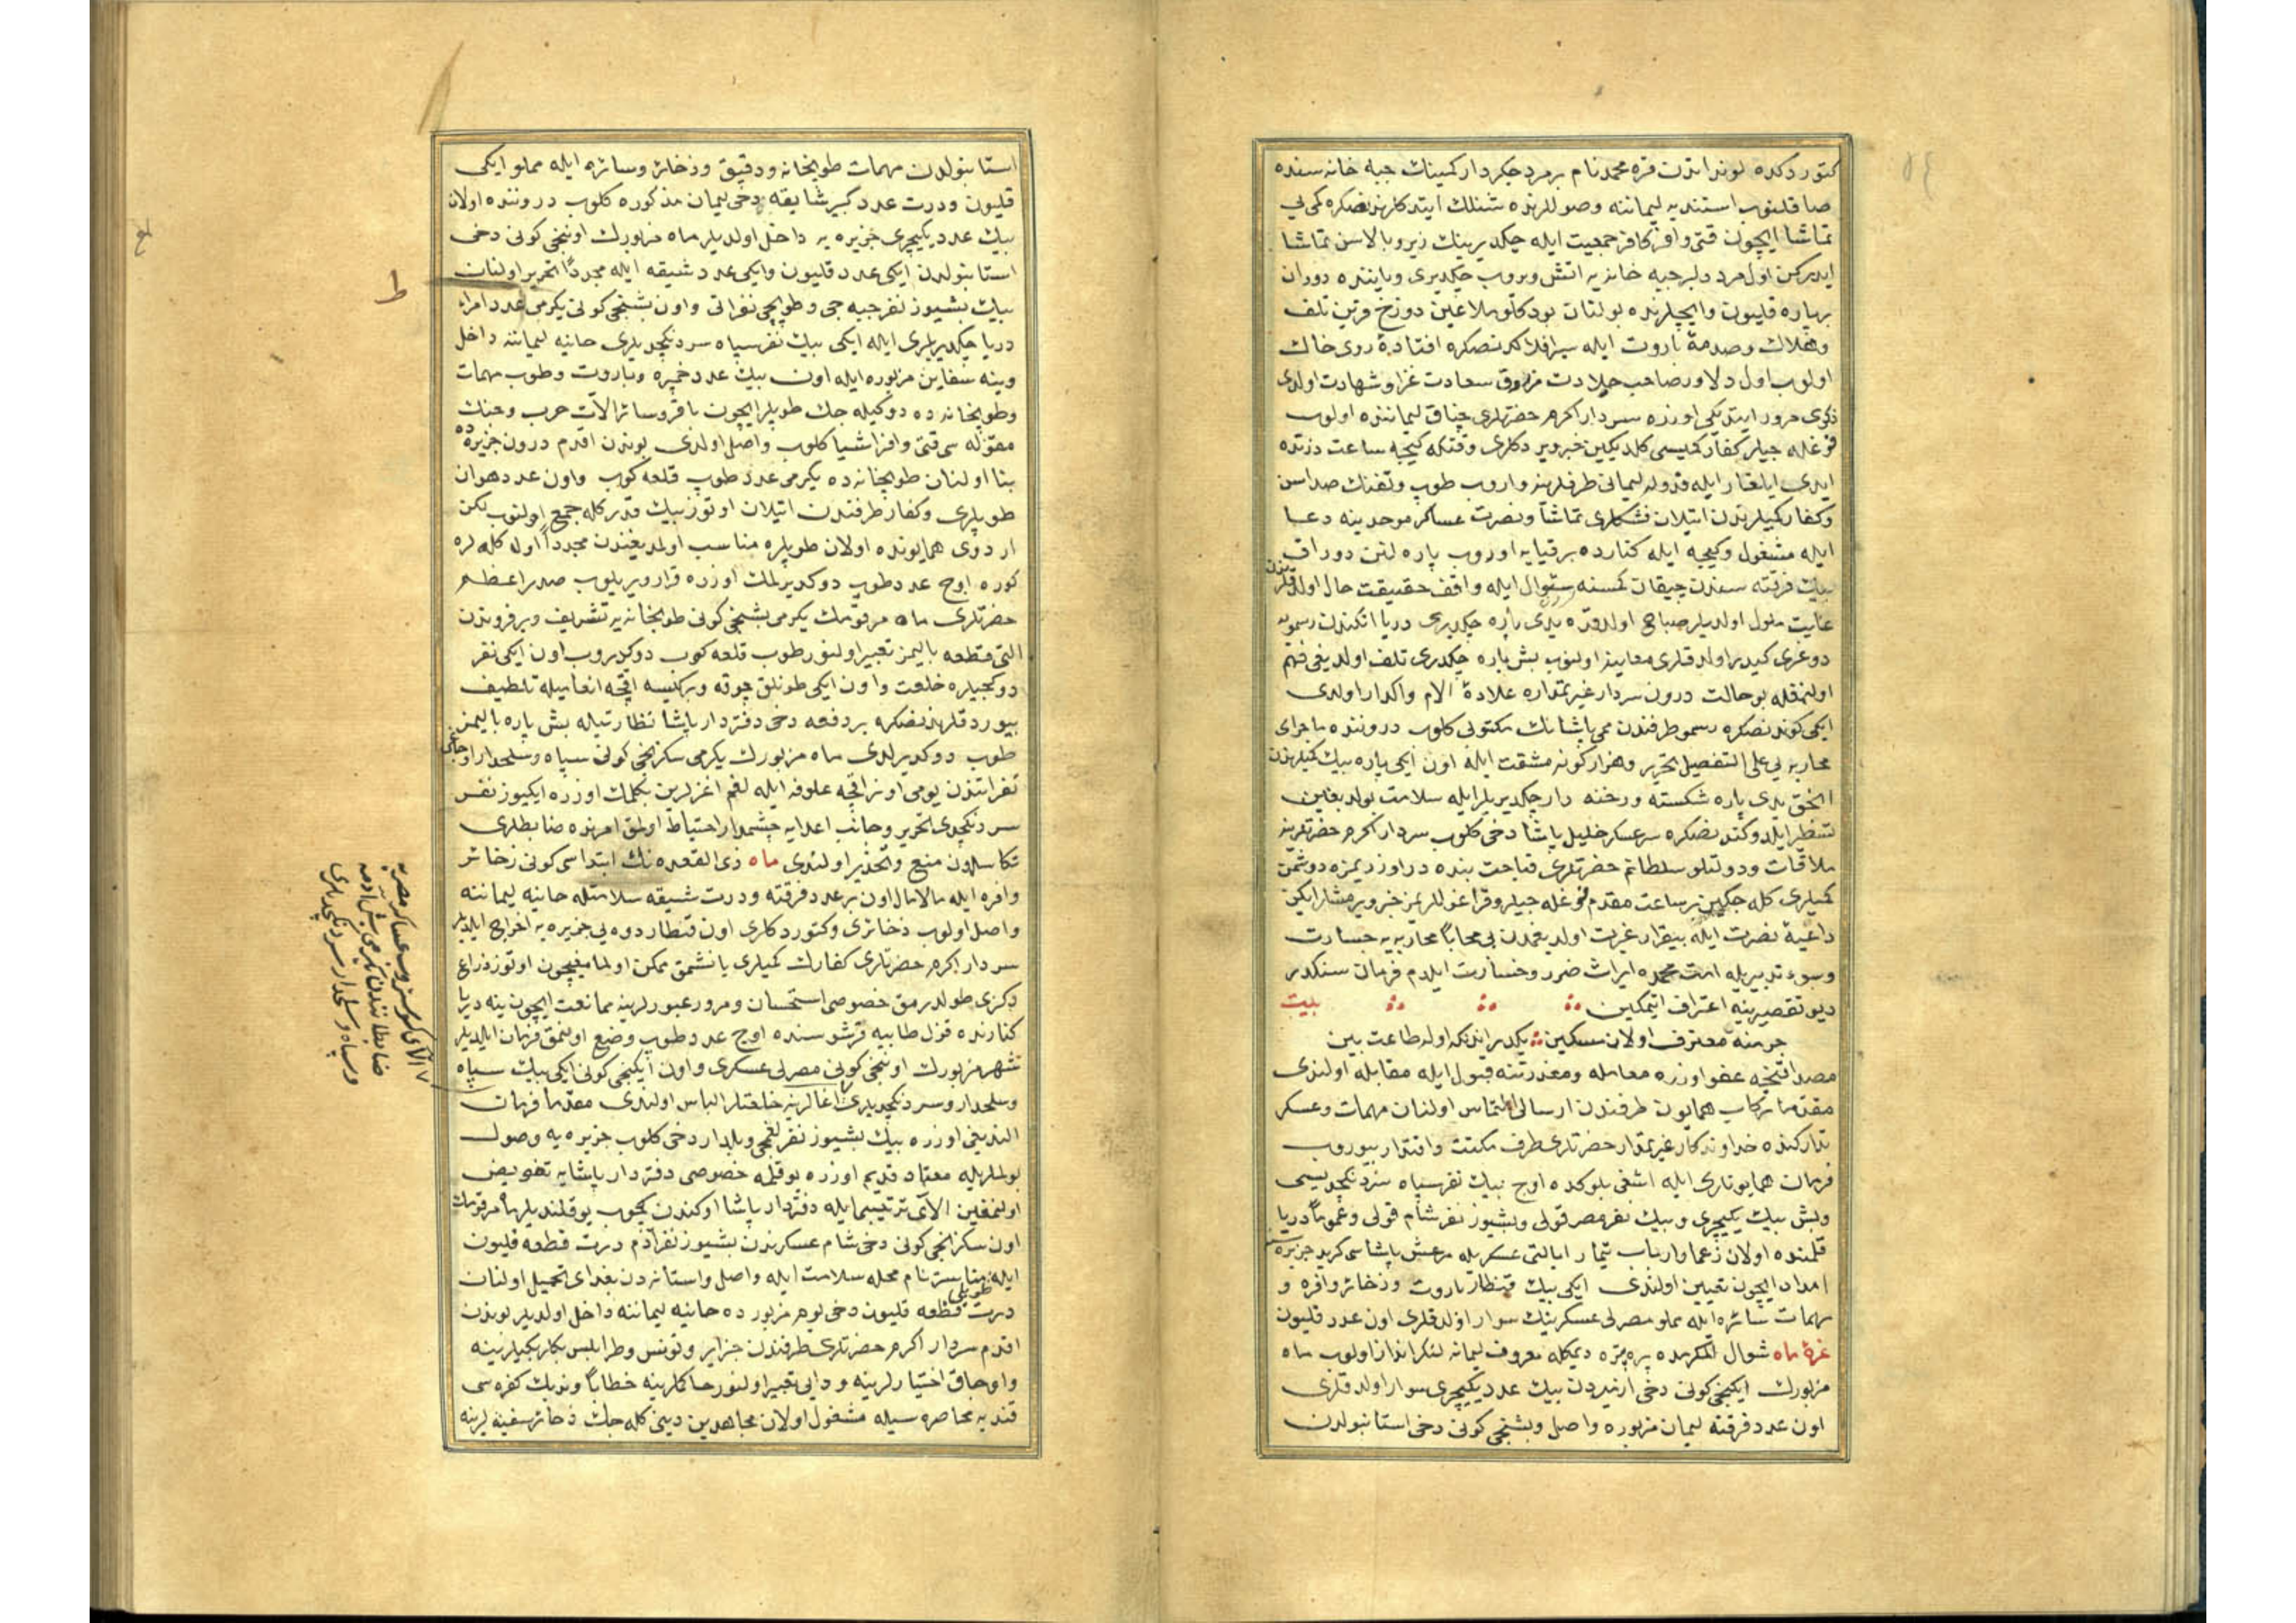 كتوردكده لوندراتدن قره محمد نام برمرد جكردار كمينك جبه خانه سنده
صاقلنوب استنديه ليماننه وصوللرنده شنلك ايتدكلرندنصكره كمى يى
تماشا ايچون قتى وافر كافر جمعيت ايله چكديرينك زير وبالاسن تماشا
ايدركن اول مرد دلير جبه خانه يه اتش ويروب چكديرى وياننده دوران
برپاره قليون وايچلرنده بولنان بودكلو ملاعين دوزخ قرين تلف
وهلاك وصدمۀ باروت ايله سيرافلاكدنصكره افتادۀ روى خاك
اولوب اول دلاور صاحب جلادت مرزوق سعادت غزا وشهادت اولدى
ذكرى مرور ايتديكى اوزره سردار اكرم حضرتلرى چناق ليماننده اولوب
قوغله جيلر كفار كميسى كلديكين خبر ويردكلرى وقتكه كيجه ساعت درتده
ايدى ايلغار ايله قدوله ليمانى طرفلرينه واروب طوپ وتفنك صداسن
وكفار كميلرندن اتيلان فشنكلرى تماشا ونصرت عساكر موحدينه دعا
ايله مشغول وكيجه ايله كنارده برقيايه اوروب پاره لنن دوراق
بيك فرقته سندن چيقان كمسنه سؤال ايله واقف حقيقت حال اولدقلرندن
غايت ملول اولديلر صباح اولدقده يدى پاره چكديرى دريا اتكندن رسمويه
دوغرى كيدر اولدقلرى معاينه اولنوب بش پاره چكدرى تلف اولديغى فهم
اولنمغله بوحالت درون سردار غيرتمداره علاوۀ الام واكدار اولدى
ايكى كوندنصكره رسمو طرفندن ممى پاشانك مكتوبى كلوب دروننده ماجراى
محاربه يى على التفصيل تحرير وهزار كونه مشقت ايله اون ايكى پاره بيك كميلرندن
انجق يدى پاره شكسته ورخنه دار چكديريلر ايله سلامت بولديغين
تسطير ايلدوكندنصكره سرعسكر خليل پاشا دخى كلوب سردار اكرم حضرتلرينه
ملاقات ودولتلو سلطانم حضرتلرى قباحت بنده در اوزريمزه دوشمن
كميلرى كله جكين بر ساعت مقدم قوغله جيلر وقراغوللريمز خبر ويرمشلر ايكن
داعيۀ نصرت ايله بيقرار غيرت اولديغمدن بى محابا محاربه يه جسارت
وسوء تدبيريله امت محمده ايراث ضرر وخسارت ايلدم فرمان سنكدر
ديو تقصيرينه اعتراف ايتمكين بيت
جرمنه معترف اولان مسكين يكدر اندنكه اوله طاعت بين
مصداقنجه عفو اوزره معامله ومعذرتنه قبول ايله مقابله اولندى
مقدما ركاب همايون طرفندن ارسالى التماس اولنان مهمات وعسكر
تداركنده خداوندكار غيرتمدار حضرتلرى صرف مكنت واقتدار بيوروب
فرمان همايونلرى ايله اشغى بلوكده اوچ بيك نفر سپاه سردنكچديسى
وبش بيك يكيچرى وبيك نفر مصر قولى وبشيوز نفر شام قولى وعموما دريا
قلمنده اولان زعما وارباب تيمار ايالتى عسكريله مرعش پاشاسى كريد جزيره سنه
امداد ايچون تعيين اولندى ايكى بيك قنطار باروت وذخائر وافره و
مهمات سائره ايله مملو مصرلى عسكرينك سوار اولدقلرى اون عدد قليون
غرۀ ماه شوال المكرمده ديمكله معروف ليمانه لنكر انداز اولوب ماه
مزبورك ايكنجى كونى دخى ازميردن بيك عدد يكيچرى سوار اولدقلرى
اون عدد فرقته ليمان مزبوره واصل وبشنجى كونى دخى استانبولدن
استانبولدن مهمات طوپخانه ودقيق وذخائر وسائره ايله مملو ايكى
قليون ودرت عدد كبير شايقه دخى ليمان مذكوره كلوب دروننده اولان
بيك عدد يكيچرى جزيره يه داخل اولديلر ماه مزبورك اوننجى كونى دخى
استانبولدن ايكى عدد قليون وايكى عدد شيقه ايله مجددا تحرير اولنان
بيك بشيوز نفر جبه جى وطوپچى نفراتى واون بشنجى كونى يكرمى عدد امراء
دريا چكديريلرى ايله ايكى بيك نفر سپاه سردنكچديلرى حانيه ليماننه داخل
وينه سفاين مزبوره ايله اون بيك عدد خمپره وباروت وطوب مهمات
وطوپخانه ده دوكيله جك طوپلر ايچون باقر وسائر الات حرب وجنك
مقوله سى قتى وافر اشيا كلوب واصل اولدى بوندن اقدم درون جزيره ده
بنا اولنان طوپخانه ده يكرمى عدد طوپ قلعه كوب واون عدد هوان
طوپلرى وكفار طرفندن اتيلان اوتوز بيك قدر كله جمع اولنوب لكن
اردوى همايونده اولان طوپلره مناسب اولمديغندن مجددا اول كله لره
كوره اوچ عدد طوپ دوكديرلمك اوزره قرار ويريلوب صدراعظم
حضرتلرى ماه مرقومك يكرمى بشنجى كونى طوپخانه يه تشريف وبر فروندن
التى قطعه باليمز تعبير اولنور طوپ قلعه كوب دوكدروب اون ايكى نفر
دوكجيلره خلعت واون ايكى طونلق چوقه وبركيسه اقچه انعاميله تلطيف
بيوردقلرندنصكره بر دفعه دخى دفتردار پاشا نظارتيله بش پاره باليمز
طوپ دوكديرلدى ماه مزبورك يكرمى سكزنجى كونى سپاه وسلحدار اوجاغى
نفراتندن يومى اونر اقچه علوفه ايله لغم اغزلرين بكلمك اوزره ايكيوز نفر
سردنكچدى تحرير وجانب اعدايه چشمدار احتياط اولمق امرنده ضابطلرى
تكاسلدن منع وتحذير اولندى ماه ذى القعده نك ابتداسى كونى ذخائر
وافره ايله مالامال اون بر عدد فرقته ودرت شيقه سلامتله حانيه ليماننه
واصل اولوب ذخائرى وكتوردكلرى اون قنطار دوه يى جزيره يه اخراج ايلديلر
سردار اكرم حضرتلرى كفارك كميلرى يانشمق ممكن اولمامغيچون اوتوز ذراع
دكزى طولدرمق خصوصى استحسان ومرور عبورلرينه ممانعت ايچون ينه دريا
كنارنده قزل طابيه قرشوسنده اوچ عدد طوپ وضع اولنمق فرمان ايلديلر
شهر مزبورك اوننجى كونى مصرلى عسكرى واون ايكنجى كونى ايكى بيك سپاه
وسلحدار وسردنكچديلرى اغالرينه خلعتلر الباس اولندى مقدما فرمان
اولنديغى اوزره بيك بشيوز نفر لغمجى وبلدار دخى كلوب جزيره يه وصول
بولملريله معتاد قديم اوزره يوقلمه خصوصى دفتردار پاشايه تفويض
اولنمغين الاى ترتيبى ايله دفتردار پاشا اوكندن كچوب يوقلنديلر ماه مرقومك
اون سكزنجى كونى دخى شام عسكرندن بشيوز نفر آدم درت قطعه قليون
ايله مناستر نام محله سلامت ايله واصل واستانه دن بغداى تحميل اولنان
درت قطعه قليون دخى يوم مزبورده حانيه ليماننه داخل اولديلر بوندن
اقدم سردار اكرم حضرتلرى طرفندن جزاير وتونس وطرابلس بكلربكيلرينه
واوجاق اختيارلرينه ودايى تعبير اولنور حاكملرينه خطابا ونديك كفره سى
قنديه محاصره سيله مشغول اولان مجاهدين دينى كله جك ذخائر سفينه لرينه
الآى كوستروب عساكر مصريه
ضابطانندن يكرمى بش آدمه
وسپاه وسلحدار سردنكچديلرى